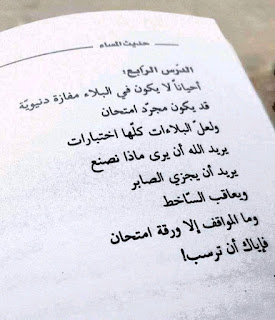 حديث المساء
الدرس الرابع:
أحياناً لا يكون في البلاء مفازة دنيويّة
قد يكون مجرّد امتحان
ولعلّ البلاءات كلّها اختبارات
يريد الله أن يرى ماذا نصنع
يريد أن يجزي الصابر
ويعاقب السّاخط
وما المواقف إلا ورقة امتحان
فإياك أن ترسب!